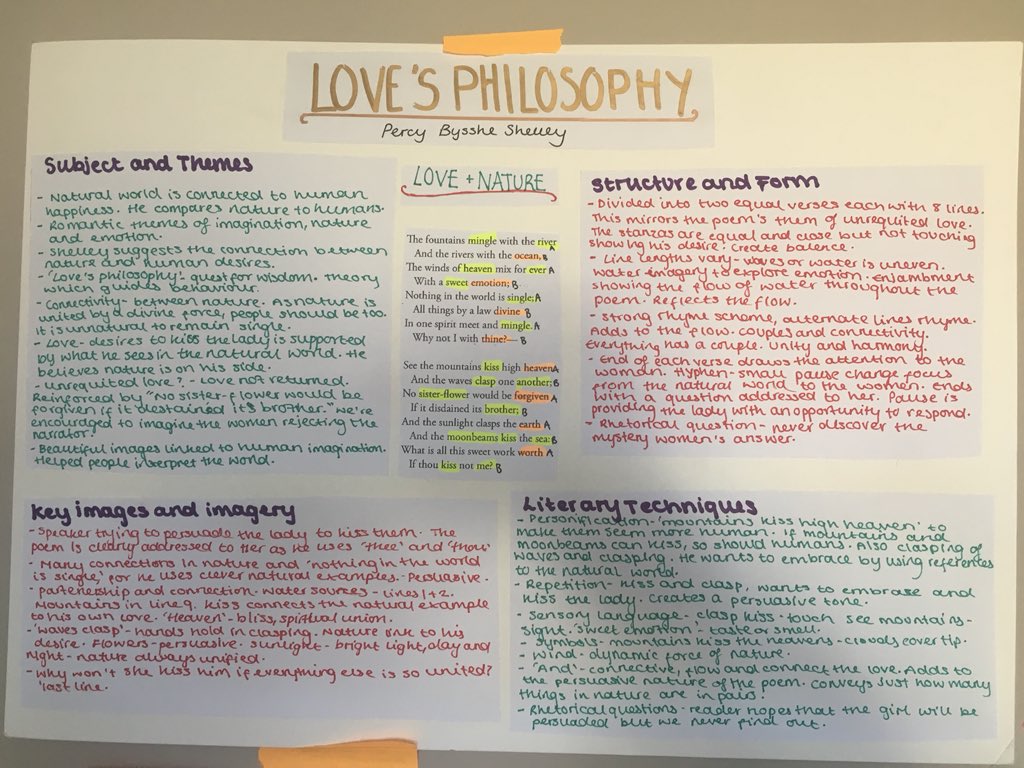 LOVE'S PHILOSOPHY
Percy Bysshe Shelley
Subject and Themes
- Natural world is connected to human
happiness. He compares nature to humans.
- Romantic themes of imagination, nature
and emotion.
- Shelley suggests the connection between
nature and human desires.
- 'Love's philosophy'- quest for wisdom. theory
which guides behaviour.
- Connectivity- between nature. As nature is
united by a divine force, people should be too.
It is unnatural to remain single.
- Love- desires to kiss the lady is supported
by what he sees in the natural world. He
believes nature is on his side.
- unrequited love? - Love not returned.
Reinforced by "No sister-flower would be
forgiven if it destained it's brother." we're
encouraged to imagine the women rejecting the
narrator.
- Beautiful images linked to human imagination.
Helped people interpret the world.
LOVE + NATURE
The fountains mingle with the river A
And the rivers with the ocean, B
The winds of heaven mix for ever A
With a sweet emotion; B
Nothing in the world is single; A
All things by a law divine B
In one spirit meet and mingle. A
Why not I with thine?— B
See the mountains kiss high heaven A
And the waves clasp one another; B
No sister-flower would be forgiven A
If it disdained its brother; B
And the sunlight clasps the earth A
And the moonbeams kiss the sea: B
What is all this sweet work worth A
If thou kiss not me? B
Structure and Form
- Divided into two equal verses each with 8 lines.
This mirrors the poem's them of unrequited love.
The stanzas are equal and close but not touching
showing his desire. Create balence.
- Line lengths vary- waves or water is uneven.
water imagery to explore emotion. Enjambment
showing the flow of water throughout the
poem. Reflects the flow.
- Strong rhyme scheme, alternate lines rhyme.
Adds to the flow. couples and connectivity.
Everything has a couple. Unity and harmony.
- End of each verse draws the attention to the
woman. Hyphen- small pause change focus
from the natural world to the women. Ends
with a question addressed to her. Pause is
providing the lady with an opportunity to respond.
- Rhetorical question - never discover the
mystery women's answer.
Key images and imagery
- Speaker trying to persuade the lady to kiss them. The
poem is clearly addressed to her as he uses 'thee' and 'thou'
- Many connections in nature and 'nothing in the world
is single,' for he uses clever natural examples. Persuasive.
- parteneship and connection- water sources - Lines 1+2.
Mountains in line 9. Kiss connects the natural example
to his own love. 'Heaven'- bliss, spiritual union.
- 'waves clasp'- hands hold in clasping. Nature link to his
desire. Flowers- persuasive. Sunlight- bright light, day and
night- nature always unified.
- Why won't she kiss him if everything else is so united?
'last line.
Literary Techniques
- Personification- 'mountains kiss high heaven' to
make them seem more human. If mountains and
moonbeams can kiss, so should humans. Also clasping of
waves and clasping. He wants to embrace by using references
to the natural world.
- Repetition- kiss and clasp, wants to embrase and
kiss the lady. Creates a persuasive tone.
- Sensory language- clasp kiss- touch see mountains-
sight. sweet emotion - taste or smell.
- Symbols- mountains kiss the heavens - clouds cover tip.
- Wind- dynamic force of nature.
- 'And'- connective, flow and connect the love. Adds to
the persuasive nature of the poem. Conveys just how many
things in nature are in pairs!
- Rhetorical questions- reader hopes that the girl will be
persuaded but we never find out.